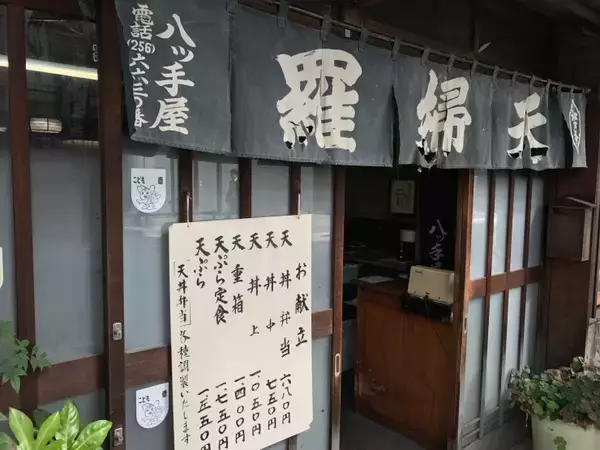 天婦羅
八ツ手屋
電話(256)六六三〇番
お献立
天丼弁当 六八〇円
天丼 中 七五〇円
天丼 上 一、〇五〇円
天重箱 一、四〇〇円
天ぷら定食 一、七五〇円
天ぷら 一、五五〇円
「天丼弁当」各種調製いたします
こども
こども
八ツ手